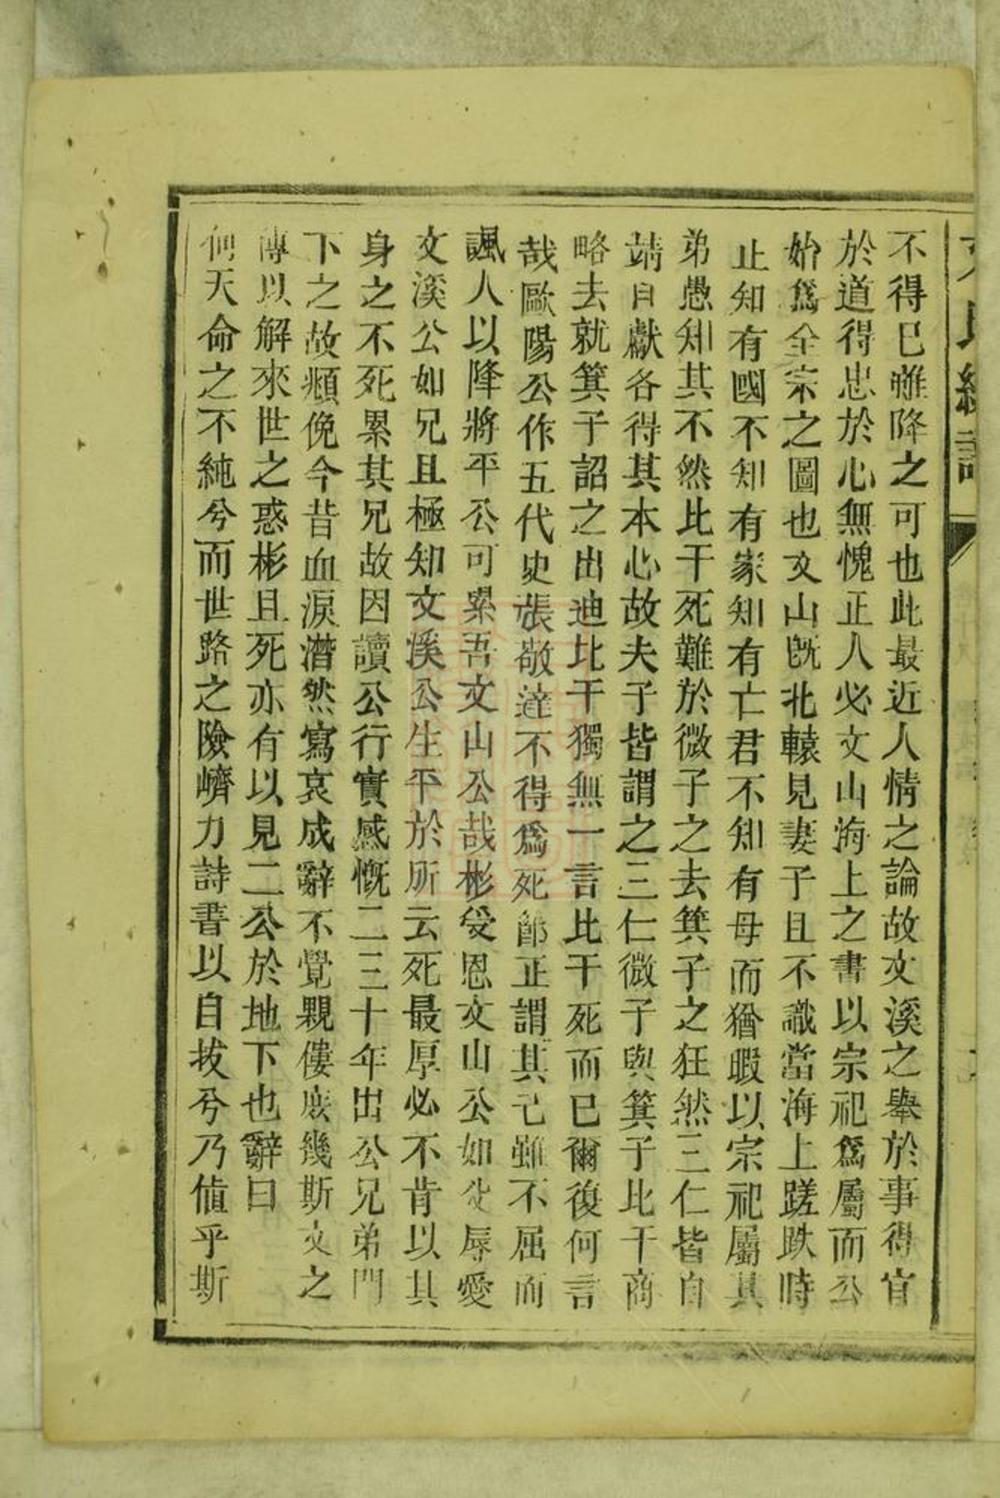 不得已雖降之可也此最近人情之論故文溪之舉於事得宜
於道得忠於心無愧正人必文山海上之書以宗祀爲屬而公
始爲全宗之圖也文山旣北轅見妻子且不識當海上蹉跌時
止知有國不知有家知有亡君不知有母而猶暇以宗祀屬其
弟愚知其不然比干死難於微子之去箕子之狂然三仁皆自
靖自獻各得其本心故夫子皆謂之三仁微子與箕子比干商
略去就箕子詔之出迪比干獨無一言比干死而已爾復何言
哉歐陽公作五代史張敬達不得爲死節正謂其己雖不屈而
諷人以降將平公可累吾文山公哉彬受恩文山公如 辱愛
文溪公如兄且極知文溪公生平於所云死最厚必不肯以其
身之不死累其兄故因讀公行實感慨二三十年出公兄弟門
下之故頫俛今昔血淚潸然寫哀成辭不覺覼僂庶幾斯文之
傳以解來世之惑彬且死亦有以見二公於地下也辭曰
何天命之不純兮而世路之險巇力詩書以自拔兮乃値乎斯